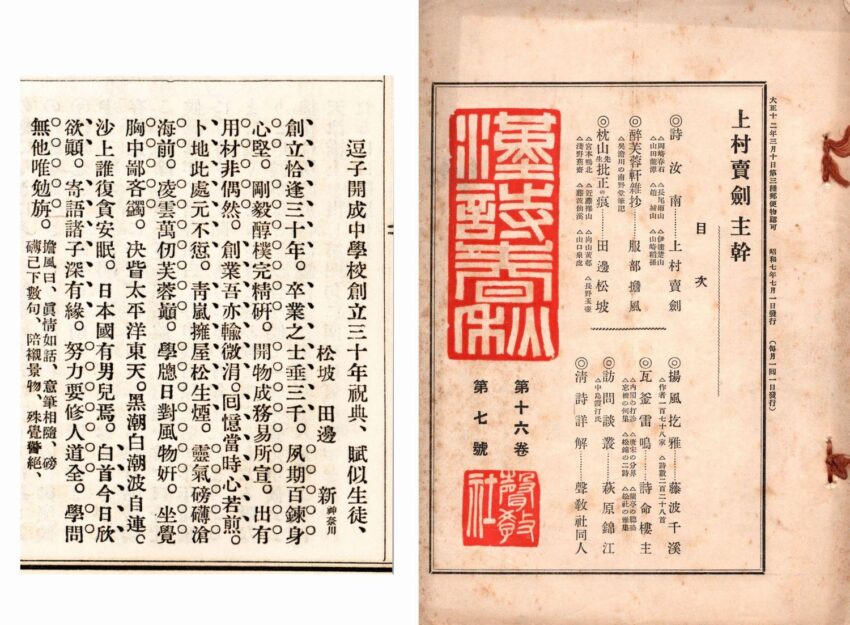 逗子開成中學校創立三十年祝典、賦似生徒、
松坡 田邊 新 神奈川
創立恰逢三十年。卒業之士垂三千。夙期百鍊身
心堅。剛毅醇樸完精研。開物成務易所宣。出有
用材非偶然。創業吾亦輸微涓。囘憶當時心若煎。
卜地此處元不愆。靑嵐擁屋松生煙。靈氣磅礴滄
海前。凌雲萬仞芙蓉巓。學牕日對風物妍。坐覺
胸中鄙吝蠲。决眥太平洋東天。黑潮白潮波自連。
沙上誰復貪安眠。日本國有男兒焉。白首今日欣
欲顚。寄語諸子深有緣。努力要修人道全。學問
無他唯勉旃。
擔風曰、眞情如話、意筆相隨、磅
礴已下數句、陪襯景物、殊覺警絕、
大正十二年三月十日第三種郵便物認可 昭和七年七月一日發行 (每月一囘一日發行)
上村賣劍主幹
目次
◎詩汝南………上村賣劍
△岡崎春石 △長尾雨山 △伊藤楚山
△山田龍潭 △趙城山 △山崎稻孫
◎醉芙蓉軒雜抄………服部擔風
△吳澹川の南野堂筆記
◎枕山先生批正の痕………田邊松坡
△宮本鴨北 △向山黃邨 △長野玉壺
△淺野蕉齋 △近藤 △山口泉處
◎揚風扢雅………藤波千溪
△作者一百七十八家 △詩數二百二十八首
◎瓦釜雷鳴………詩命樓主
◎訪問談叢………萩原錦江
△中島霞汀氏
◎淸詩詳解………聲敎社同人
漢詩春秋
第十六卷
第七號
聲敎社